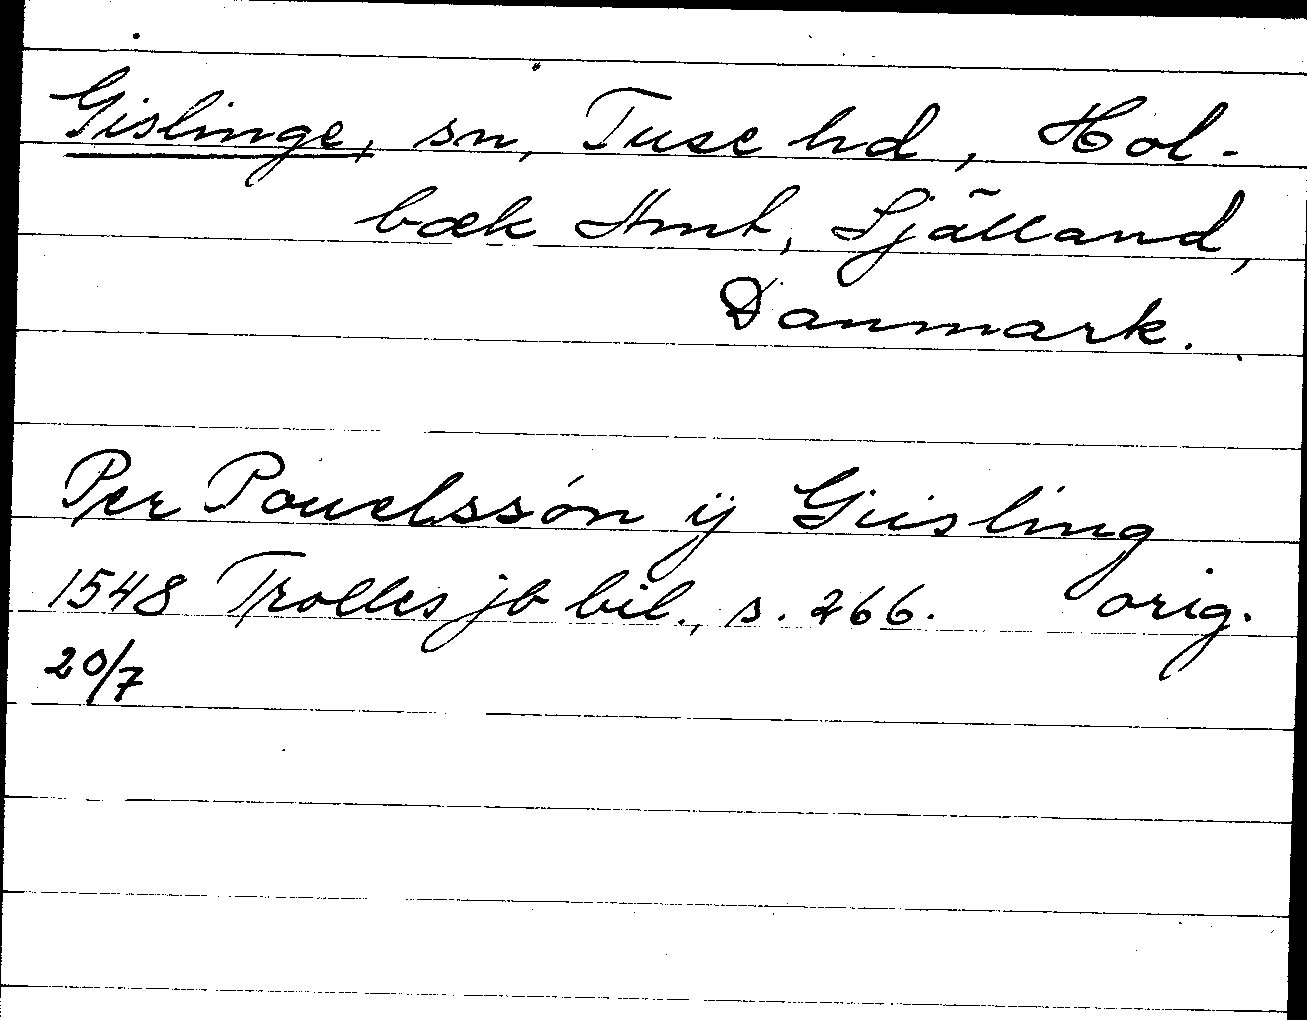 Gislinge, sn, Tuse hd, Hol-
bæk Amt, Själland,
Danmark.
Per Pouelssøn ij Giisling
1548 Trolles jb bil., s. 266. orig.
20/7